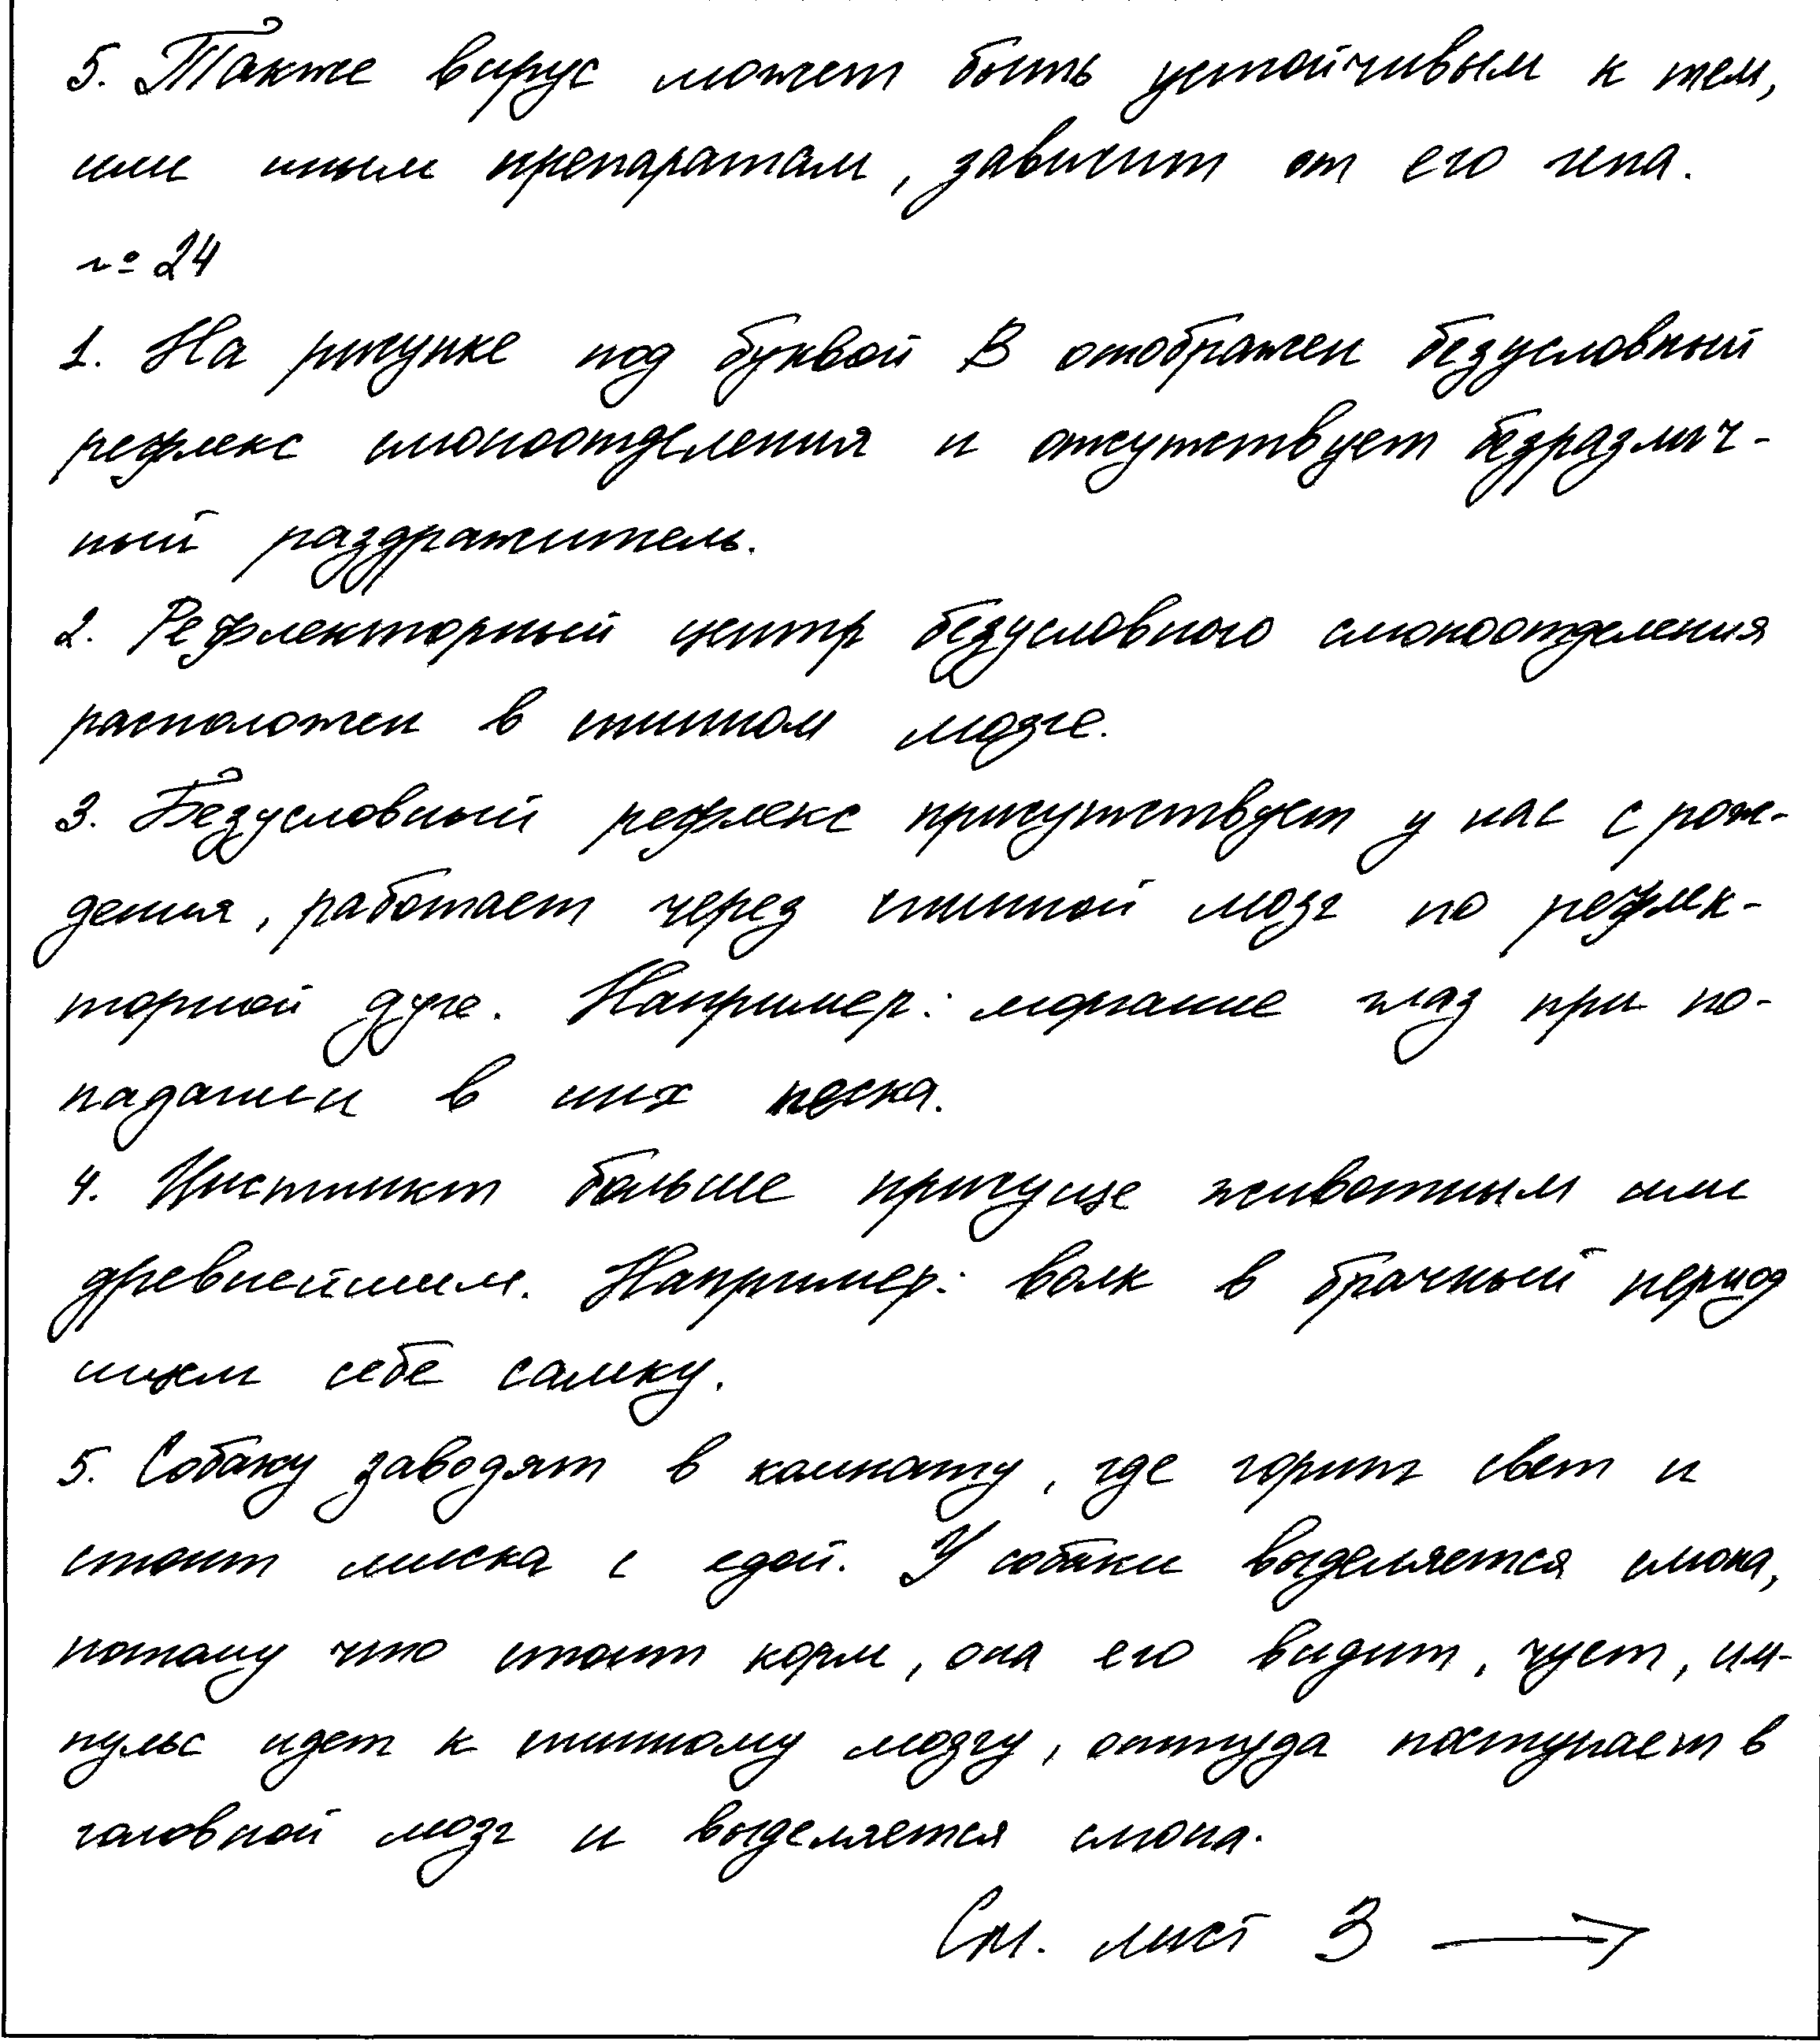 5. Также вирус может быть устойчивым к тем,
или иным препаратам, зависит от его типа.
№ 24
1. На рисунке под буквой В отображен безусловный
рефлекс слюноотделения и отсутствует безразлич-
ный раздражитель.
2. Рефлекторный центр безусловного слюноотделения
расположен в спинном мозге.
3. Безусловный рефлекс присутствует у нас с рож-
дения, работает через спинной мозг по рефлек-
торной дуге. Например: моргание глаз при по-
падании в них песка.
4. Инстинкт больше присуще животным или
древнейшим. Например: волк в брачный период
ищет себе самку.
5. Собаку заводят в комнату, где горит свет и
стоит миска с едой. У собаки выделяется слюна,
потому что стоит корм, она его видит, чует, им-
пульс идет к спинному мозгу, оттуда поступает в
головной мозг и выделяется слюна.
См. лист 3